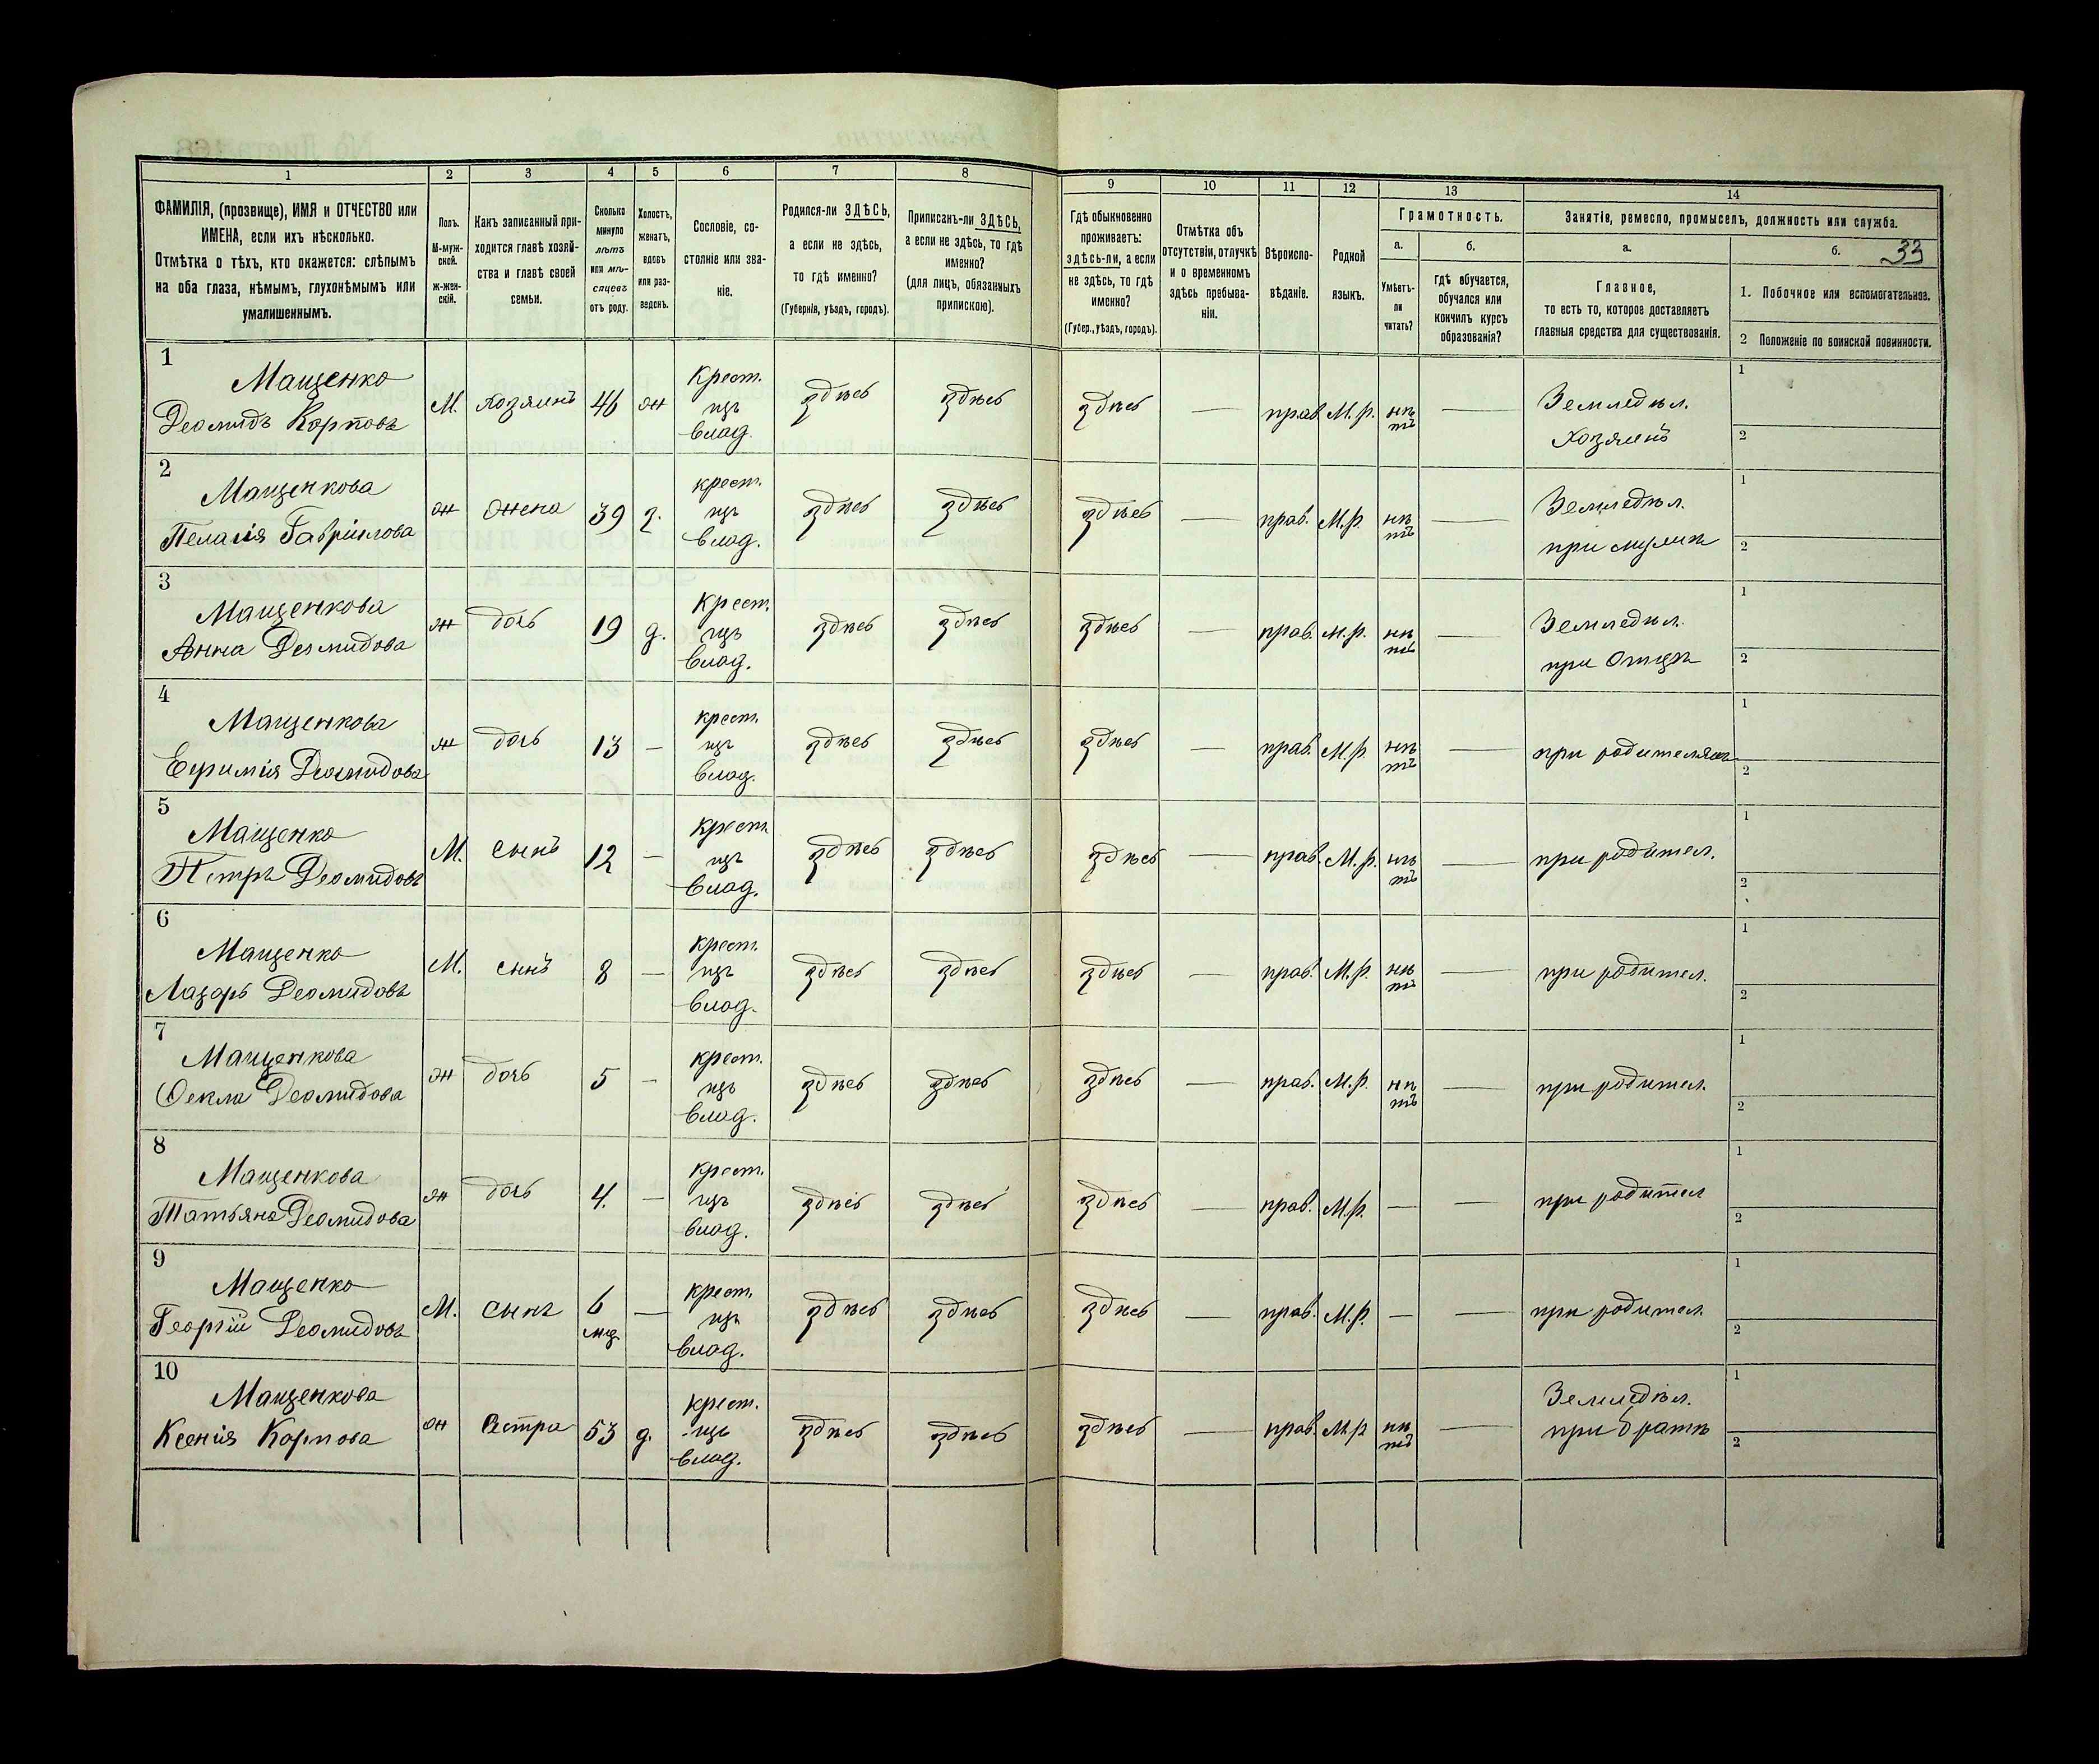 1 2 3 4 5 6 7 8 9 10 11 12 13 14
ФАМИЛІЯ, (прозвище), ИМЯ и ОТЧЕСТВО или
ИМЕНА, если ихъ нѣсколько.
Отмѣтка о тѣхъ, кто окажется: слѣпымъ
на оба глаза, нѣмымъ, глухонѣмымъ или
умалишеннымъ.
Полъ.
М-муж-
ской.
ж-жен-
скій.
Какъ записанный при-
ходится главѣ хозяй-
ства и главѣ своей
семьи.
Сколько
минуло
лѣтъ
или мѣ-
сяцевъ
отъ роду.
Холостъ,
женатъ,
вдовъ
или раз-
веденъ.
Сословіе, со-
стояніе или зва-
ніе.
Родился-ли ЗДѢСЬ,
а если не здѣсь,
то гдѣ именно?
(Губернія, уѣздъ, городъ).
Приписанъ-ли ЗДѢСЬ,
а если не здѣсь, то гдѣ
именно?
(для лицъ, обязанныхъ
припискою).
Гдѣ обыкновенно
проживаетъ:
здѣсь-ли, а если
не здѣсь, то гдѣ
именно?
(Губер., уѣздъ, городъ).
Отмѣтка объ
отсутствіи, отлучкѣ
и о временномъ
здѣсь пребыва-
ніи.
Вѣроиспо-
вѣданіе.
Родной
языкъ.
Грамотность.
а.
Умѣетъ-
ли
читать?
б.
гдѣ обучается,
обучался или
кончилъ курсъ
образованія?
Занятія, ремесло, промыселъ, должность или служба.
а.
Главное,
то есть то, которое доставляетъ
главныя средства для существованія.
б. 33
1. Побочное или вспомогательное.
2 Положеніе по воинской повинности.
1
Мащенко
Деомидъ Карповъ
М. хозяинъ 46 ж
Крест.
изъ
влад.
здѣсь здѣсь здѣсь — прав. М.р. нѣ
тъ —
Земледѣл.
Хозяинъ
1
2
2
Мащенкова
Пелагія Гавріилова
ж жена 39 з.
крест.
изъ
влад.
здѣсь здѣсь здѣсь — прав. М.р. нѣ
тъ —
Земледѣл.
при мужѣ
1
2
3
Мащенкова
Анна Деомидова
ж дочь 19 д.
Крест.
изъ
влад.
здѣсь здѣсь здѣсь — прав. М.р. нѣ
тъ —
Земледѣл.
при Отцѣ
1
2
4
Мащенкова
Ефимія Деомидова
ж дочь 13 —
крест.
изъ
влад.
здѣсь здѣсь здѣсь — прав. М.р. нѣ
тъ —
при родителяхъ
1
2
5
Мащенко
Петръ Деомидовъ
М. сынъ 12 —
крест.
изъ
влад.
здѣсь здѣсь здѣсь — прав. М.р. нѣ
тъ —
при родител.
1
2
6
Мащенко
Лазарь Деомидовъ
М. сынъ 8 —
крест.
изъ
влад.
здѣсь здѣсь здѣсь — прав. М.р. нѣ
тъ —
при родител.
1
2
7
Мащенкова
Ѳекла Деомидова
ж дочь 5 —
крест.
изъ
влад.
здѣсь здѣсь здѣсь — прав. М.р. нѣ
тъ —
при родител.
1
2
8
Мащенкова
Татьяна Деомидова
ж дочь 4. —
крест.
изъ
влад.
здѣсь здѣсь здѣсь — прав. М.р. — —
при родител
1
2
9
Мащенко
Георгій Деомидовъ
М. сынъ 6
мц —
крест.
изъ
влад.
здѣсь здѣсь здѣсь — прав. М.р. — —
при родител.
1
2
10
Мащенкова
Ксенія Карпова
ж Сестра 53 д.
крест.
изъ
влад.
здѣсь здѣсь здѣсь — прав. М.р нѣ
тъ —
Земледѣл.
при братѣ
1
2